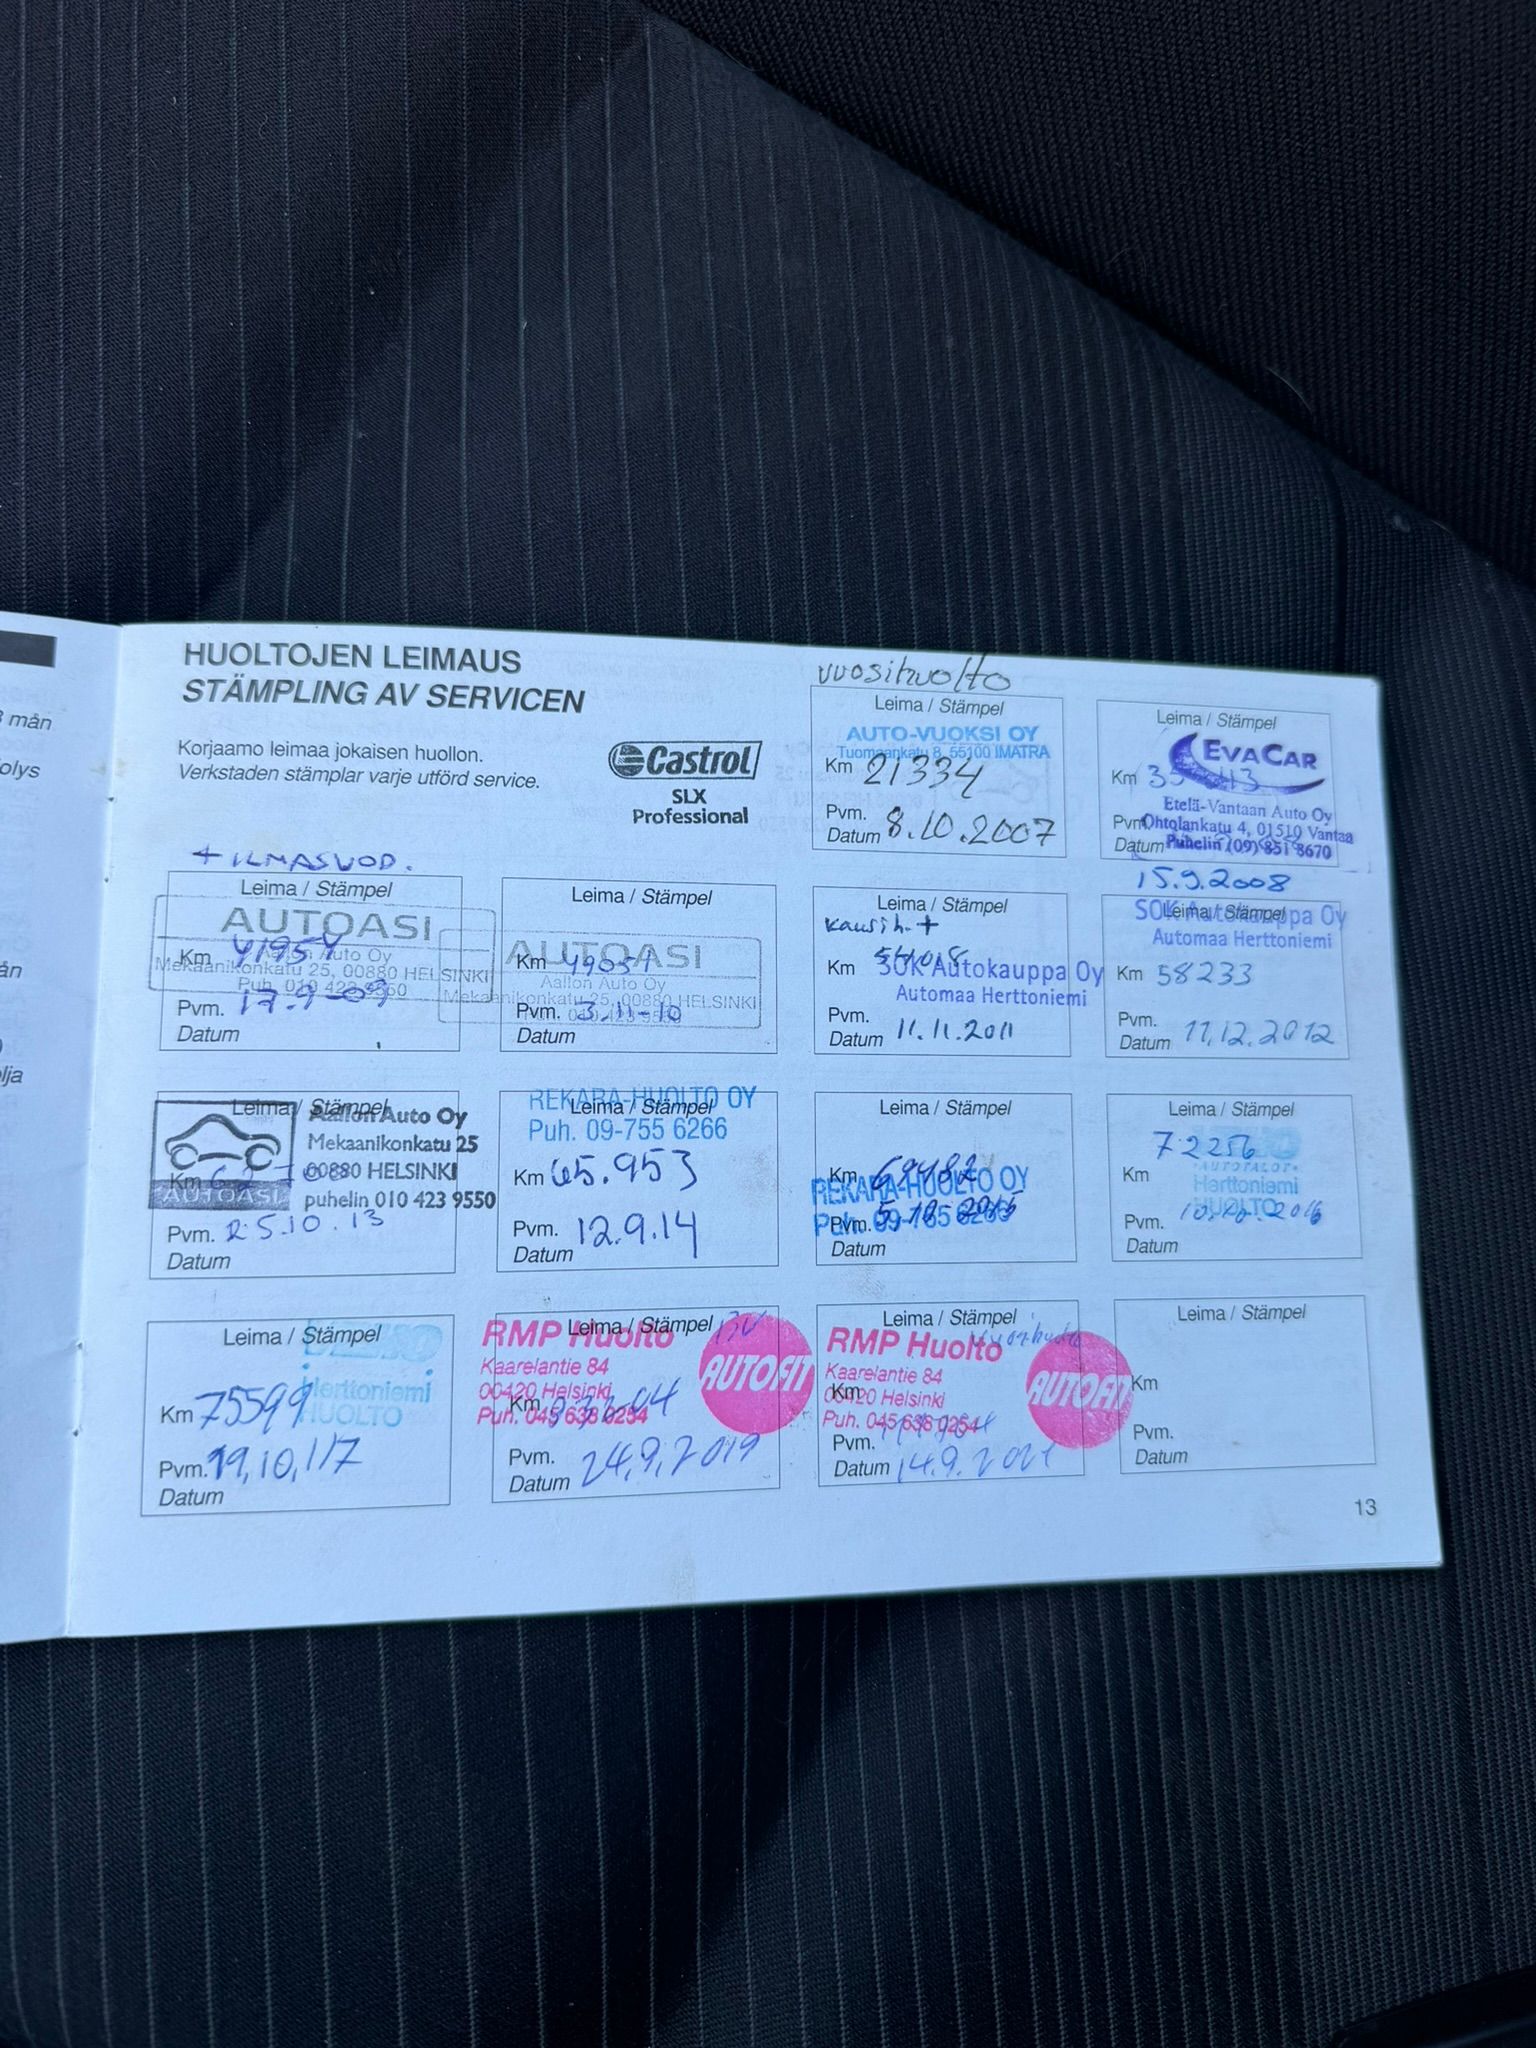 3 mån
olys
ån
lja
HUOLTOJEN LEIMAUS
STÄMPLING AV SERVICEN
Korjaamo leimaa jokaisen huollon.
Verkstaden stämplar varje utförd service.
Castrol
SLX
Professional
vuosihuolto
Leima / Stämpel
AUTO-VUOKSI OY
Tuomaankatu 8, 55100 IMATRA
Km 21334
Pvm.
Datum 8.10.2007
Leima / Stämpel
EVACAR
Km
Etelä-Vantaan Auto Oy
Pvm. Ohtolankatu 4, 01510 Vantaa
Datum Puhelin (09) 851 8670
15.9.2008
+ ILMASUOD.
Leima / Stämpel
AUTOASI
Km 41954
Aallon Auto Oy
Mekaanikonkatu 25, 00880 HELSINKI
Puh. 010 423 9550
Pvm. 17.9-09
Datum
Leima / Stämpel
AUTOASI
Km 49051
Aallon Auto Oy
Mekaanikonkatu 25, 00880 HELSINKI
Pvm. 3.11-10
Datum
Leima / Stämpel
kausih. +
Km SOK Autokauppa Oy
Automaa Herttoniemi
Pvm.
Datum 11.11.2011
Leima / Stämpel
SOK Autokauppa Oy
Automaa Herttoniemi
Km 58233
Pvm.
Datum 11.12.2012
Leima / Stämpel
Aallon Auto Oy
Mekaanikonkatu 25
Km 00880 HELSINKI
AUTOASI puhelin 010 423 9550
Pvm. 25.10.13
Datum
REKARA-HUOLTO OY
Leima / Stämpel
Puh. 09-755 6266
Km 65.953
Pvm. 12.9.14
Datum
Leima / Stämpel
Km 69482
REKARA-HUOLTO OY
Puh. 09-755 6266
Pvm.
Datum
Leima / Stämpel
72256
Km
AUTOTALOT
Herttoniemi
HUOLTO
Pvm. 10.10.2016
Datum
Leima / Stämpel
Herttoniemi
HUOLTO
Km 75599
Pvm. 19,10,17
Datum
Leima / Stämpel
RMP Huolto
Kaarelantie 84
00420 Helsinki
Km
Puh. 045 638 0254
AUTOFIT
Pvm.
Datum 24.9.2019
Leima / Stämpel
RMP Huolto
Vuosihuolto
Kaarelantie 84
Km
00420 Helsinki
Puh. 045 638 0254
AUTOFIT
Pvm.
Datum 14.9.2021
Leima / Stämpel
Km
Pvm.
Datum
13